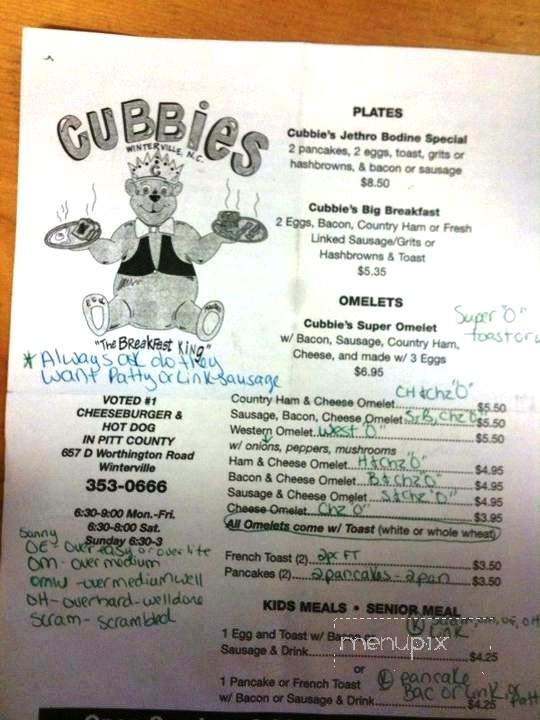 CUBBiES
WINTERVILLE, N.C.
C
"The BREAKFAST KING"
* Always ask do they
want Patty or Link-sausage
VOTED #1
CHEESEBURGER &
HOT DOG
IN PITT COUNTY
657 D Worthington Road
Winterville
353-0666
6:30-9:00 Mon.-Fri.
6:30-8:00 Sat.
Sunday 6:30-3
Sunny
OE - over easy or over lite
OM - over medium
OMW - over medium well
OH - overhard - welldone
Scram - Scrambled
PLATES
Cubbie's Jethro Bodine Special
2 pancakes, 2 eggs, toast, grits or
hashbrowns, & bacon or sausage
$8.50
Cubbie's Big Breakfast
2 Eggs, Bacon, Country Ham or Fresh
Linked Sausage/Grits or
Hashbrowns & Toast
$5.35
OMELETS
Cubbie's Super Omelet
w/ Bacon, Sausage, Country Ham,
Cheese, and made w/ 3 Eggs
$6.95
Super "O"
toast or
CH & Chz "O"
Country Ham & Cheese Omelet $5.50
Sausage, Bacon, Cheese Omelet S, B, Chz "O" $5.50
Western Omelet West "O" $5.50
w/ onions, peppers, mushrooms
Ham & Cheese Omelet H & Chz "O" $4.95
Bacon & Cheese Omelet B & Chz "O" $4.95
Sausage & Cheese Omelet S & Chz "O" $4.95
Cheese Omelet Chz "O" $3.95
All Omelets come w/ Toast (white or whole wheat)
French Toast (2) 2pc FT $3.50
Pancakes (2) 2 pancakes - 2 pan $3.50
KIDS MEALS • SENIOR MEAL
1 Egg and Toast w/ Bacon or
Sausage & Drink $4.25
or
1 Pancake or French Toast
w/ Bacon or Sausage & Drink $4.25
pancake
Bac or Link or
Patt
menupix